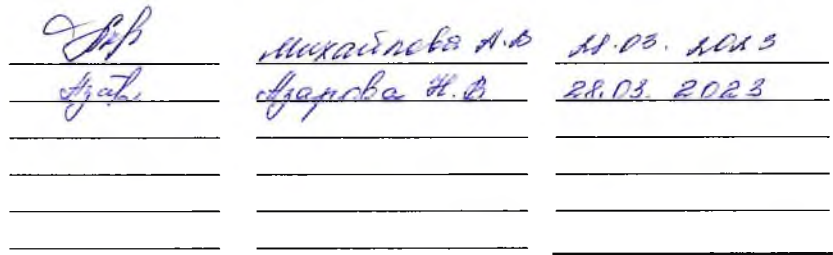 Михайлова А.В 28.03. 2023
Азарова Н.В 28.03. 2023